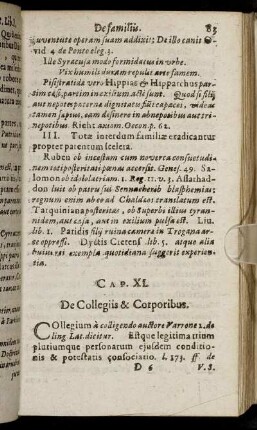 De familiis. 83
juventute operam suam addixit: De illo canit O-
vid 4 de Ponto eleg. 3.
Ille Syracusa modo formidatus in urbe.
Vix humili duram repulit arte famem.
Pisistratidæ vero Hippias & Hipparchus par-
tim cæsi, partim in exilium acti sunt. Quod si filii
aut nepotes paterna dignitatis fuit capaces, videas
tamen sæpius, eam desinere in abnepotibus aut tri-
nepotibus. Richt axiom. Oecon p. 62.
III. Totæ interdum familiæ eradicantur
propter parentum scelera.
Ruben ob incestum cum noverca consuetudi-
nem nec posteritati pænas accersit. Genes. 49. Sa-
lomon ob idololatriam. 1. Reg. 11. v. 3. Assarhad-
don luit ob patru sui Sennacherib blasphemias;
regnum enim ab eo ad Chaldæos translatum est.
Tarquiniana posteritas, ob Superbi illius tyran-
nidem, aut cæsa, aut in exilium pulsa est. Liv.
lib. 1. Paridis filij ruina camera in Trogana ar-
ce oppressi. Dyctis Cretens lib. 5. atque alia
hujus rei exempla quotidiana suggerit experien-
tia.
CAP. XI.
De Collegiis & Corporibus.
COllegium à colligendo auctore Varrone 2. de
ling Lat. dicitur. Estque legitima trium
pluriumque personarum ejusdem conditio-
nis & potestatis consociatio. l. 173. ff. de
D 6 V. S.